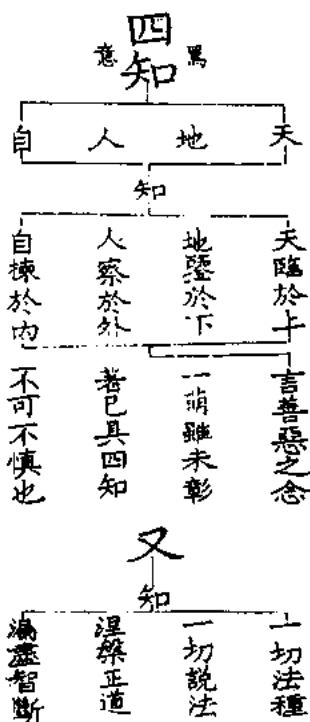 四知
意
天
地
人
自
知
天臨於上
地鑒於下
人察於外
自揀於內
言善惡之念
一萌雖未彰
著已具四知
不可不慎也
又
知
一切法種
一切說法
涅槃正道
漏盡智斷